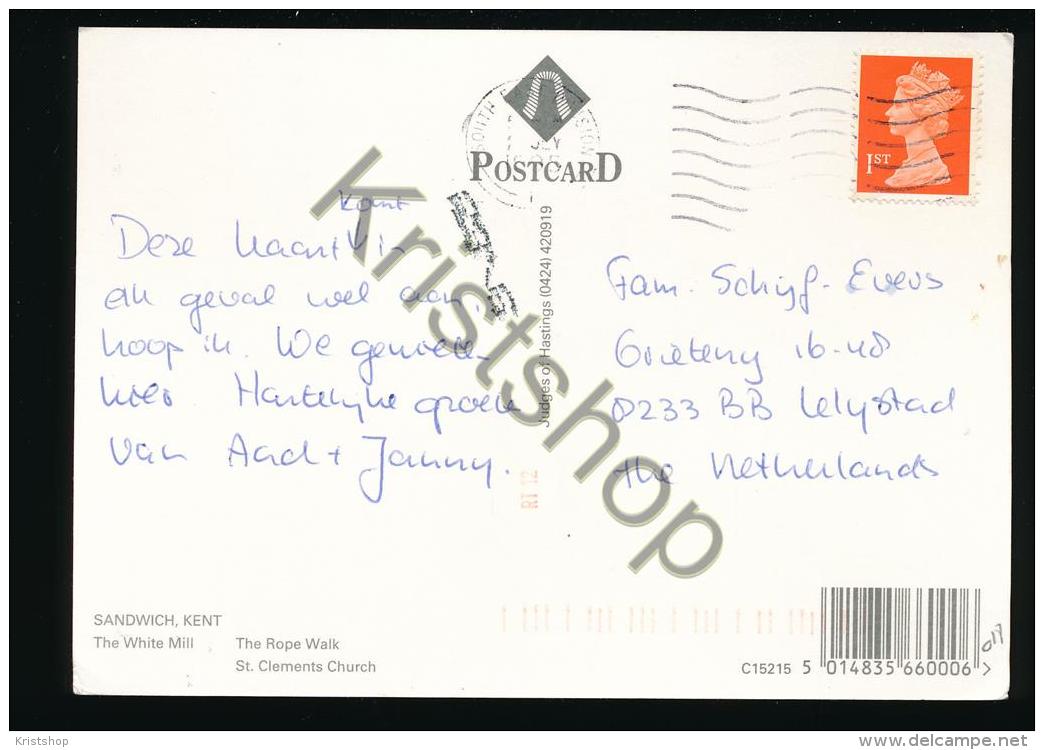 POSTCARD
1ST
komt
Deze kaart in
elk geval wel aan,
hoop ik. We genieten
hier. Hartelijke groeten
van Aad + Janny.
Judges of Hastings (0424) 420919
Fam. Schijf-Evers
16-48
8233 BB Lelystad
the Netherlands
RT 12
SANDWICH, KENT
The White Mill The Rope Walk
St. Clements Church
C15215 5 014835 660006 >
017
Kristshop
Kristshop
delcampe.net